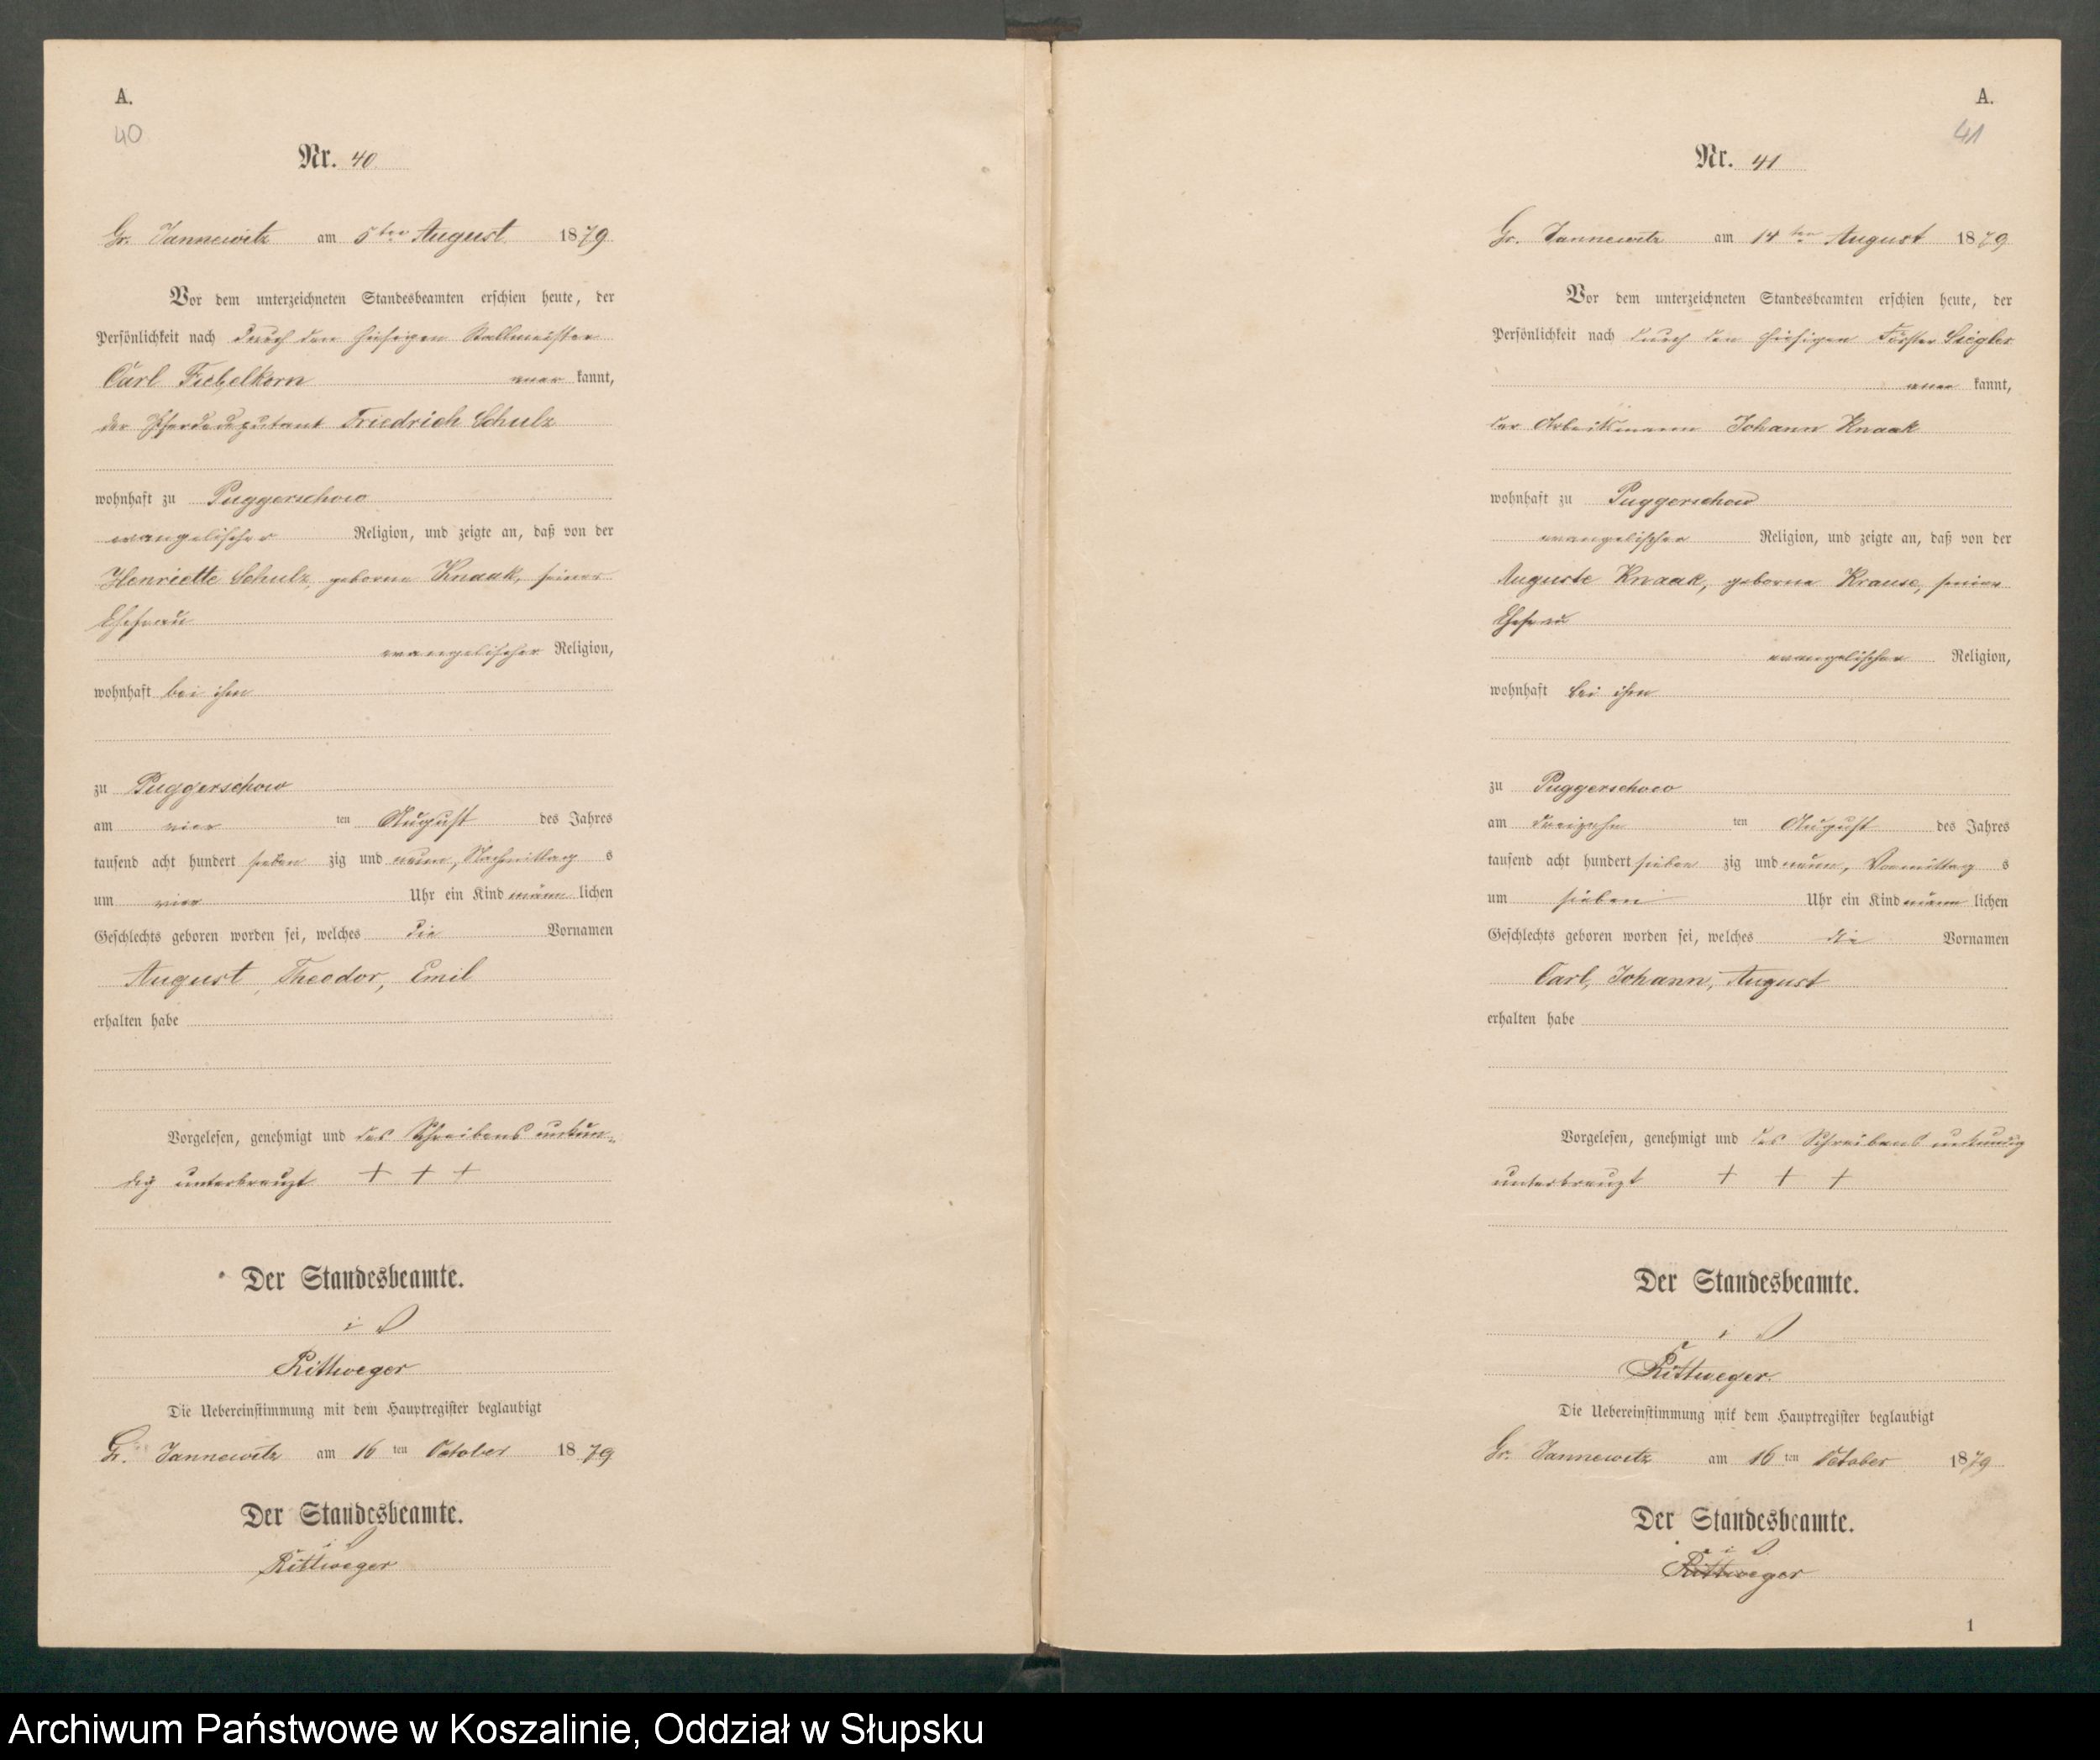 A.
40
Nr. 40
Gr. Jannewitz am 5ten August 1879
Vor dem unterzeichneten Standesbeamten erschien heute, der
Persönlichkeit nach durch den hiesigen Stallmeister
Carl Fiebelkorn aner kannt,
der Pferdedeputant Friedrich Schulz
wohnhaft zu Puggerschow
evangelischer Religion, und zeigte an, daß von der
Henriette Schulz, geborne Knaak, seiner
Ehefrau
evangelischer Religion,
wohnhaft bei ihm
zu Puggerschow
am vier ten August des Jahres
tausend acht hundert sieben zig und neun, Nachmittag s
um vier Uhr ein Kind männ lichen
Geschlechts geboren worden sei, welches die Vornamen
August, Theodor, Emil
erhalten habe
Vorgelesen, genehmigt und des Schreibens unkun-
dig unterkreuzt + + +
Der Standesbeamte.
Rittweger
Die Uebereinstimmung mit dem Hauptregister beglaubigt
Gr. Jannewitz am 16 ten October 1879
Der Standesbeamte.
Rittweger
A.
41
Nr. 41
Gr. Jannewitz am 14ten August 1879
Vor dem unterzeichneten Standesbeamten erschien heute, der
Persönlichkeit nach durch den hiesigen Förster Siegler
aner kannt,
der Arbeitsmann Johann Knaak
wohnhaft zu Puggerschow
evangelischer Religion, und zeigte an, daß von der
Auguste Knaak, geborne Krause, seiner
Ehefrau
evangelischer Religion,
wohnhaft bei ihm
zu Puggerschow
am dreizehn ten August des Jahres
tausend acht hundert sieben zig und neun, Vormittag s
um sieben Uhr ein Kind männ lichen
Geschlechts geboren worden sei, welches die Vornamen
Carl, Johann, August
erhalten habe
Vorgelesen, genehmigt und des Schreibens unkundig
unterkreuzt + + +
Der Standesbeamte.
Rittweger.
Die Uebereinstimmung mit dem Hauptregister beglaubigt
Gr. Jannewitz am 16 ten October 1879
Der Standesbeamte.
Rittweger
1
Archiwum Państwowe w Koszalinie, Oddział w Słupsku